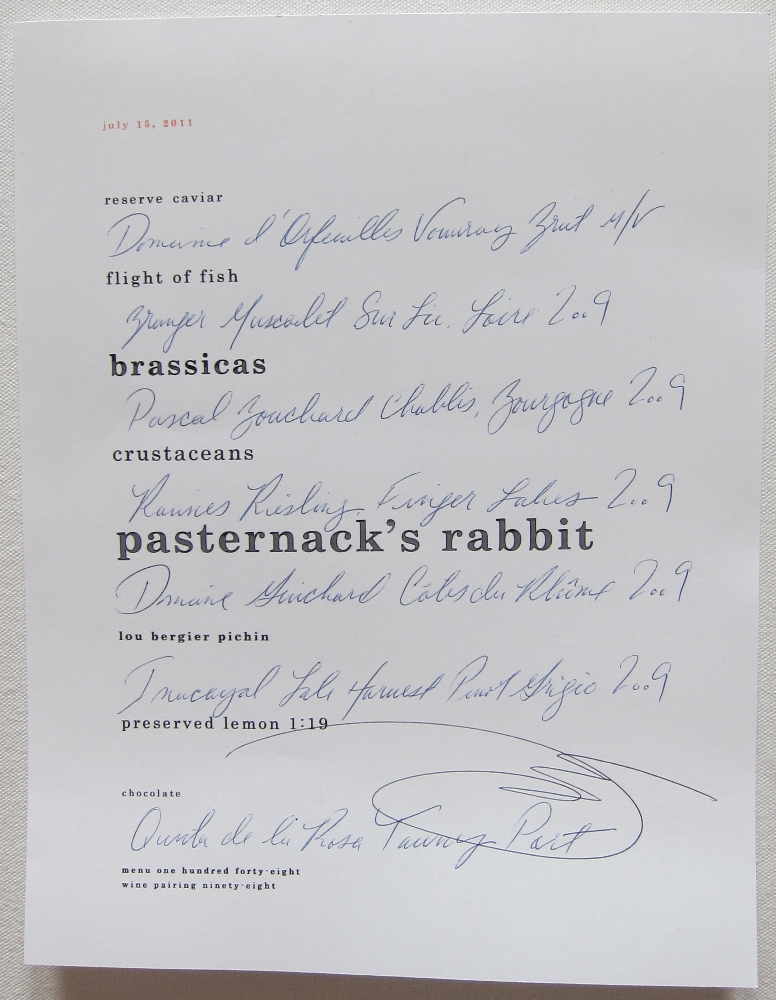 july 15, 2011
reserve caviar
Domaine d'Orfeuilles Vouvray Brut
flight of fish
Branger Muscadet Sur Lie, Loire 2009
brassicas
Pascal Bouchard Chablis, Bourgogne 2009
crustaceans
Ravines Riesling, Finger Lakes 2009
pasternack's rabbit
Domaine Guichard Côtes du Rhône 2009
lou bergier pichin
Inacayal Late Harvest Pinot Grigio 2009
preserved lemon 1:19
chocolate
Quinta de la Rosa Tawny Port
menu one hundred forty-eight
wine pairing ninety-eight